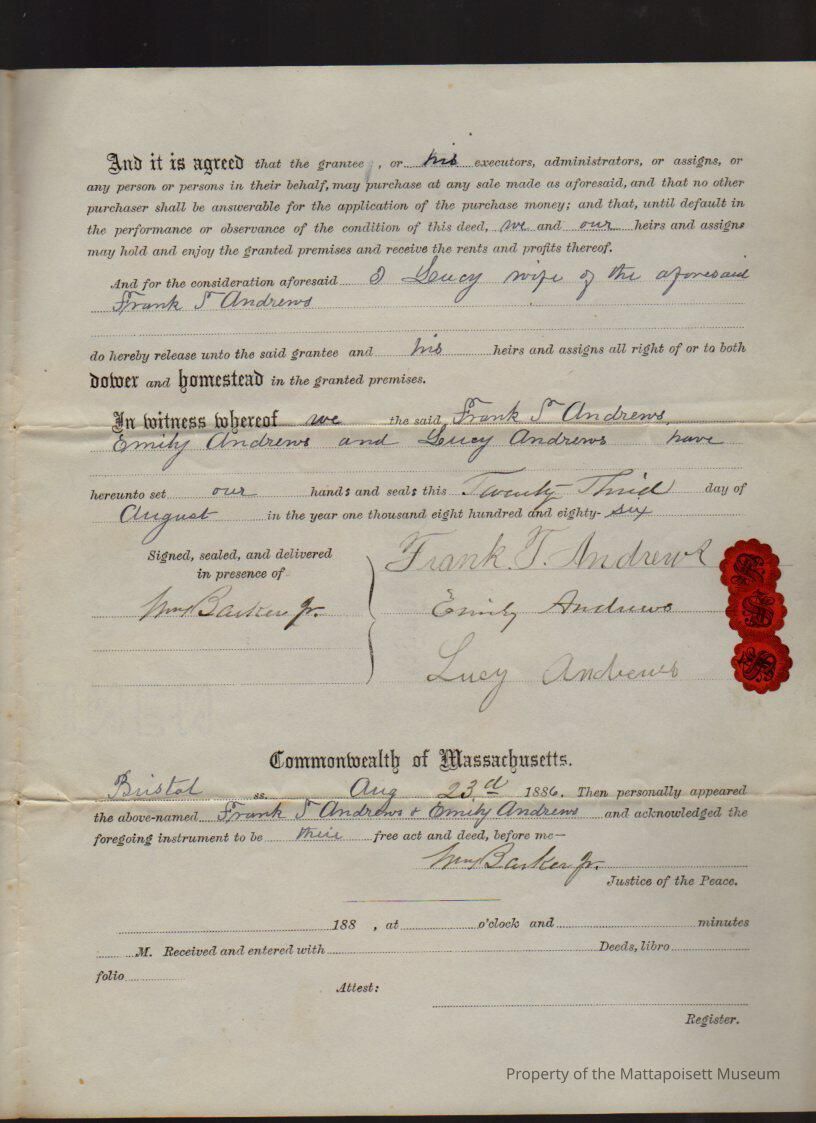 And it is agreed that the grantee , or his executors, administrators, or assigns, or
any person or persons in their behalf, may purchase at any sale made as aforesaid, and that no other
purchaser shall be answerable for the application of the purchase money; and that, until default in
the performance or observance of the condition of this deed, we and our heirs and assigns
may hold and enjoy the granted premises and receive the rents and profits thereof.
And for the consideration aforesaid I Lucy wife of the aforesaid
Frank T Andrews
do hereby release unto the said grantee and his heirs and assigns all right of or to both
dower and homestead in the granted premises.
In witness whereof we the said Frank T Andrews,
Emily Andrews and Lucy Andrews have
hereunto set our hands and seals this Twenty Third day of
August in the year one thousand eight hundred and eighty-six
Signed, sealed, and delivered
in presence of
Wm Barker Jr.
Frank. T. Andrews
Emily Andrews
Lucy Andrews
Commonwealth of Massachusetts.
Bristol ss. Aug 23.d 1886. Then personally appeared
the above-named Frank T Andrews + Emily Andrews and acknowledged the
foregoing instrument to be their free act and deed, before me—
Wm Barker Jr.
Justice of the Peace.
188 , at o'clock and minutes
M. Received and entered with Deeds, libro
folio
Attest:
Register.
Property of the Mattapoisett Museum